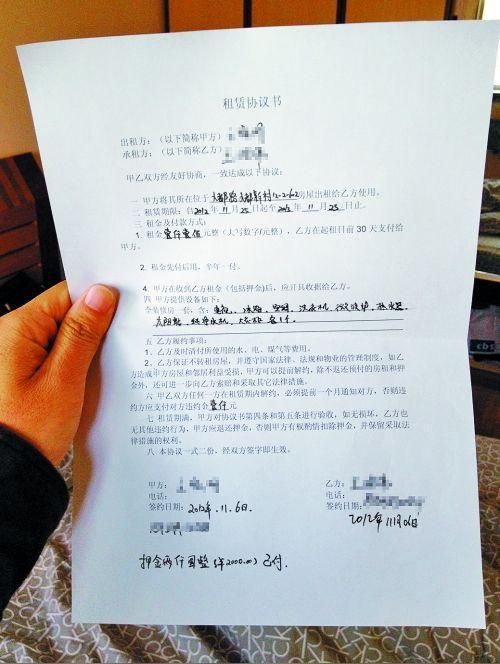 租赁协议书
出租方：（以下简称甲方）
承租方：（以下简称乙方）
甲乙双方经友好协商，一致达成以下协议：
一 甲方将其所在位于 新村12-2-602房屋出租给乙方使用。
二 租赁期限：自2012年11月25日起至 年11月25日止。
三 租金及付款方式：
1. 租金 元整（大写数字/元整），乙方在起租日前30天支付给
甲方。
2. 租金先付后用，半年一付。
4. 甲方在收到乙方租金（包括押金）后，应开具收据给乙方。
四 甲方提供设备如下：
全装修房一套，含：电视、冰箱、空调、洗衣机、微波炉、热水器、
太阳能、 各1个。
五 乙方履约事项：
1、乙方及时清付所使用的水、电、煤气等费用。
2、乙方保证不转租房屋，并遵守国家法律、法规和物业的管理制度，如乙
方造成甲方房屋和邻居利益受损，甲方可以提前解约，除不退还预付的房租和押
金外，还可进一步向乙方索赔和采取其它法律措施。
六 甲乙双方任何一方在租赁期内解约，必须提前一个月通知对方，否则违
约方应支付对方违约金壹仟元
七 租赁期满，甲方对协议书第四条和第五条进行验收，如无损坏，乙方也
无其他违约行为，甲方应退还押金，否则甲方有权酌情扣除押金，并保留采取法
律措施的权利。
八 本协议一式二份，经双方签字即生效。
甲方：
电话：
签约日期：2012年.11.6日.
乙方：
电话：
签约日期：
2012年11月6日
押金两仟圆整（¥2000.00）已付.
cbs